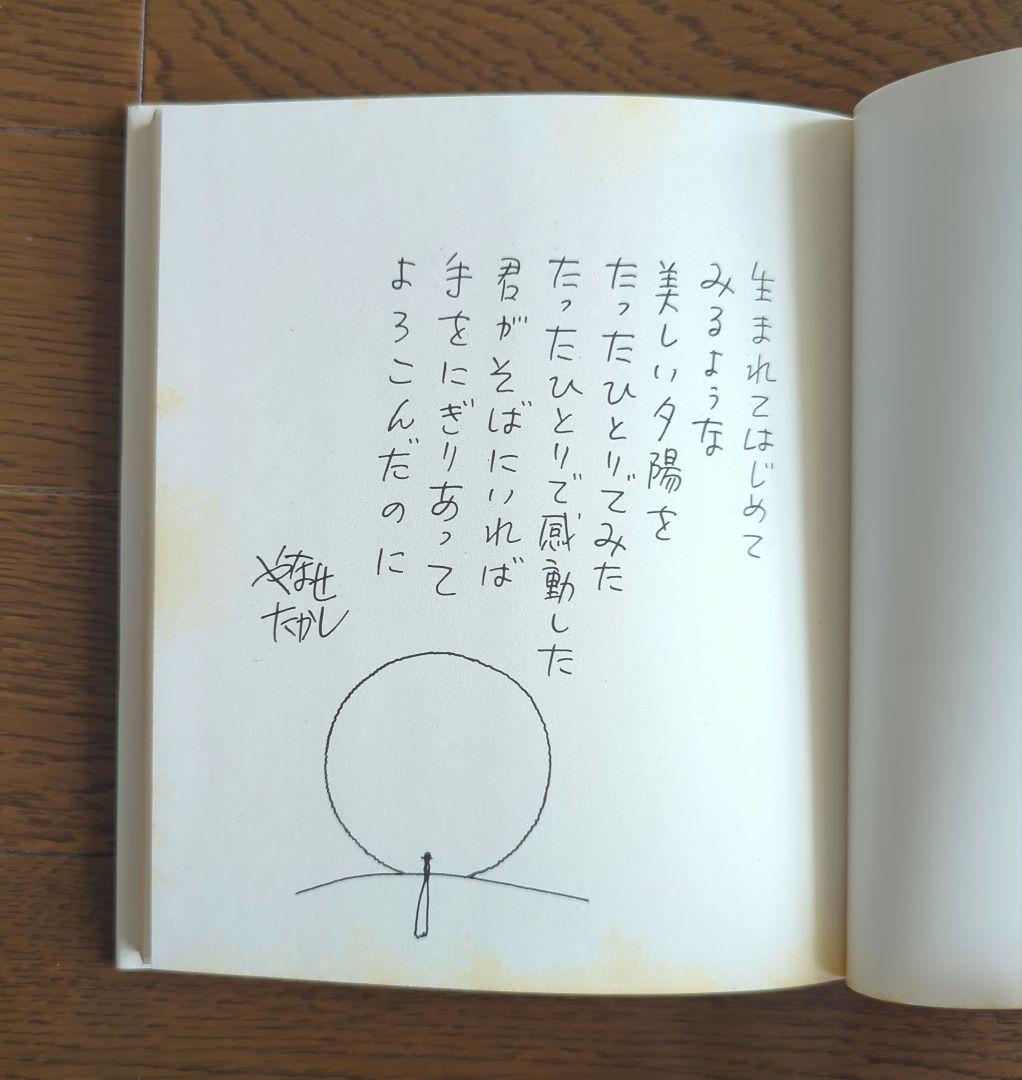 生まれてはじめて
みるような
美しい夕陽を
たったひとりでみた
たったひとりで感動した
君がそばにいれば
手をにぎりあって
よろこんだのに
やなせ
たかし